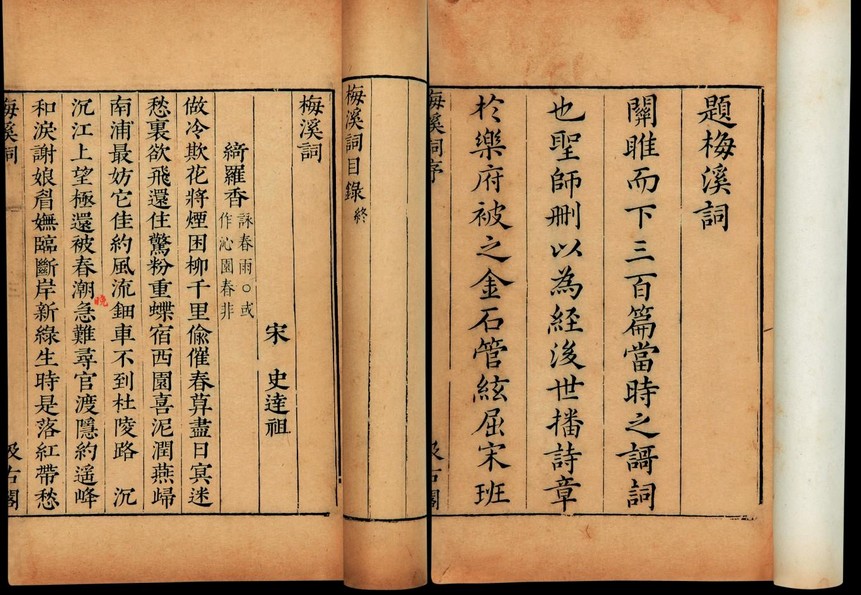 題梅溪詞
關雎而下三百篇當時之謌詞
也聖師刪以為經後世播詩章
於樂府被之金石管絃屈宋班
梅溪詞序
汲古閣
梅溪詞目錄終
梅溪詞
宋 史達祖
綺羅香詠春雨○或作沁園春非
做冷欺花將煙困柳千里偷催春暮盡日冥迷
愁裏欲飛還住驚粉重蝶宿西園喜泥潤燕歸
南浦最妨它佳約風流鈿車不到杜陵路 沉
晚
沉江上望極還被春潮急難尋官渡隱約遙峰
和淚謝娘眉嫵臨斷岸新綠生時是落紅帶愁
梅溪詞
汲古閣